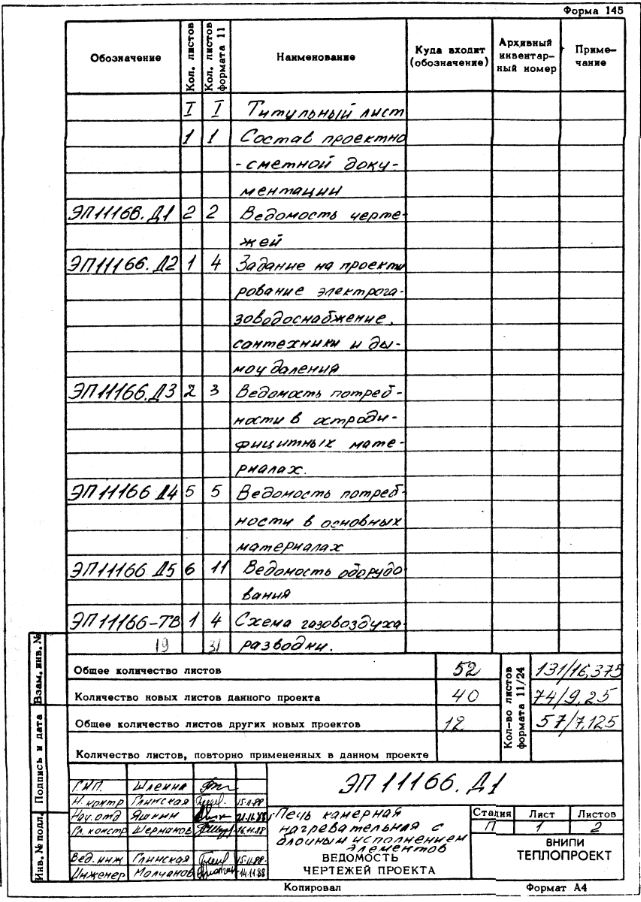 Форма 145
Обозначение | Кол. листов | Кол. листов формата 11 | Наименование | Куда входит (обозначение) | Архивный инвентарный номер | Примечание
I I Титульный лист
1 1 Состав проектно
-сметной доку-
ментации
ЭП11166.Д1 2 2 Ведомость черте-
жей
ЭП11166.Д2 1 4 Задание на проекти
рование электрога-
зоводоснабжение,
сантехники и ды-
моудаления
ЭП11166.Д3 2 3 Ведомость потреб-
ности в остроди-
фицитных мате-
риалах.
ЭП11166 Д4 5 5 Ведомость потреб-
ности в основных
материалах
ЭП11166 Д5 6 11 Ведомость оборудо
вания
ЭП11166-ТВ 1 4 Схема газовоздуха
19 31 разводки.
Общее количество листов 52
Количество новых листов данного проекта 40
Общее количество листов других новых проектов 12
Количество листов, повторно примененных в данном проекте
Кол-во листов формата 11/24
131/16,375
74/9,25
57/7,125
Взам. инв. №
Подпись и дата
Инв. № подл.
ЭП 11166.Д1
ГИП. Шленик
Н. контр Глинская 15.11.88
Нач. отд Яшкин
Гл. констр Шерманов
Вед. инж Глинская 15.11.88
Инженер Молчанов 14.11.88
Печь камерная
нагревательная с
блочным исполнением
элементов
ВЕДОМОСТЬ
ЧЕРТЕЖЕЙ ПРОЕКТА
Стадия Лист Листов
П 1 2
ВНИПИ
ТЕПЛОПРОЕКТ
Копировал Формат А4